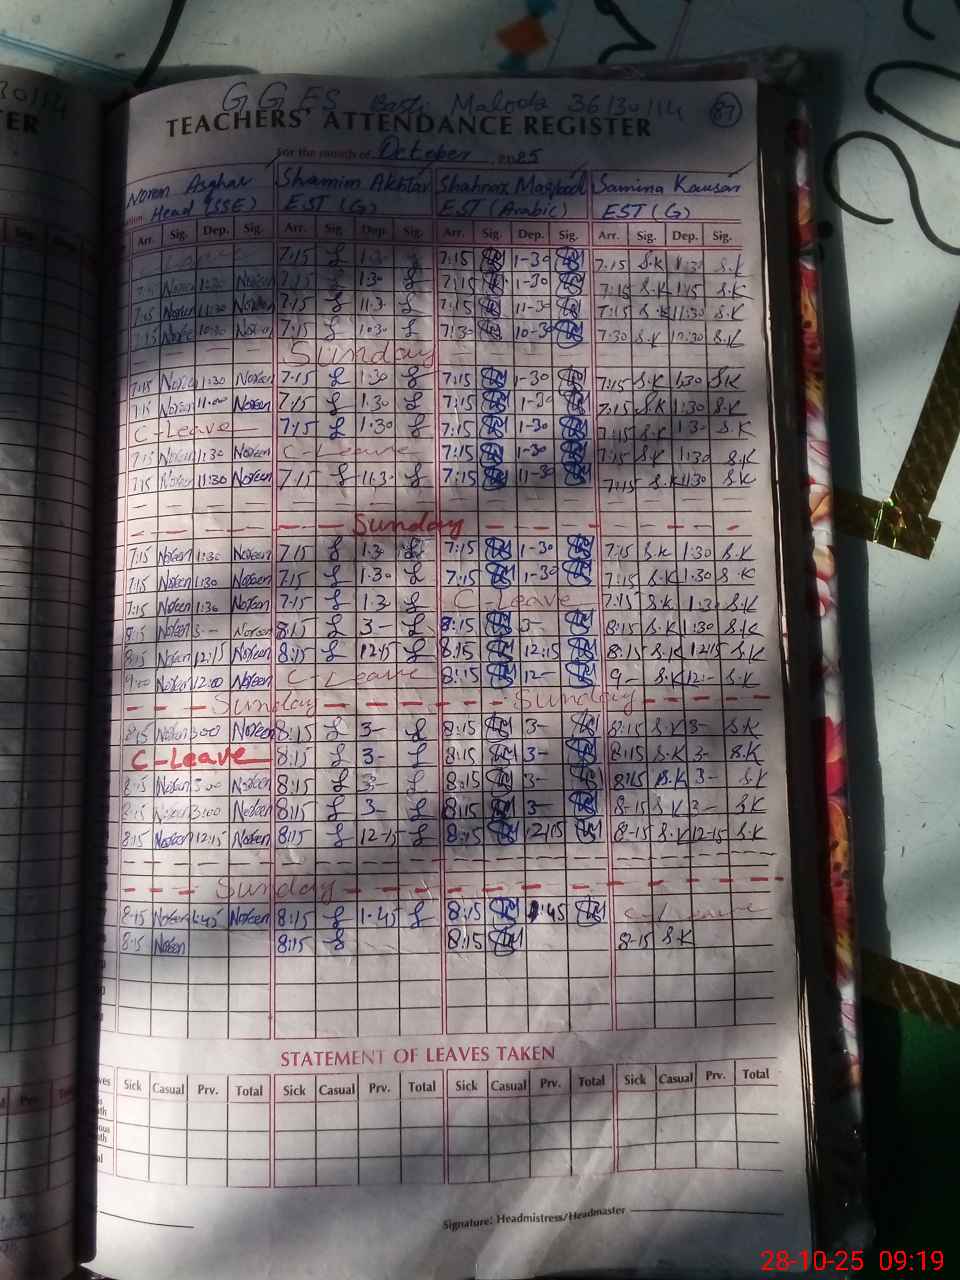 30/14
GGES Basti Maloda 36/30/14 87
TER
TEACHERS' ATTENDANCE REGISTER
For the month of October 2025
Noren Asghar Shamim Akhtar Shahnaz Maqbool Samina Kausar
Head (SSE) EST (G) EST (Arabic) EST (G)
Arr. Sig. Dep. Sig. Arr. Sig. Dep. Sig. Arr. Sig. Dep. Sig. Arr. Sig. Dep. Sig.
7:15 1:30 7:15 1-30 7:15 S.K 1:30 S.K
7:15 Noreen 1:30 Noreen 7:15 1:30 7:15 1-30 7:15 S.K 1:15 S.K
7:15 Noreen 11:30 Noreen 7:15 11:30 7:15 11-30 7:15 S.K 11:30 S.K
7:15 10:30 7:15 10:30 7:30 10-30 7:30 S.K S.K
Sunday
7:15 Noreen 1:30 Noreen 7:15 1:30 7:15 1-30 7:15 S.K 1:30 S.K
7:15 Noreen 11:00 Noreen 7:15 1:30 7:15 1-30 7:15 S.K 1:30 S.K
C-Leave 7:15 1:30 7:15 1-30 7:15 S.K 1:30 S.K
7:15 Noreen 1:30 Noreen C-Leave 7:15 1-30 7:15 S.K 1:30 S.K
7:15 Noreen 11:30 Noreen 7:15 11:30 7:15 11-30 7:15 S.K 11:30 S.K
Sunday
7:15 Noreen 1:30 Noreen 7:15 1:30 7:15 1-30 7:15 S.K 1:30 S.K
7:15 Noreen 1:30 Noreen 7:15 1:30 7:15 1-30 7:15 S.K 1:30 S.K
7:15 Noreen 1:30 Noreen 7:15 1:30 C-Leave 7:15 S.K 1:30 S.K
8:15 Noreen 3- Noreen 8:15 3- 8:15 3- 8:15 S.K 1:30 S.K
8:15 Noreen 12:15 Noreen 8:15 12:15 8:15 12:15 8:15 S.K 12:15 S.K
9:00 Noreen 12:00 Noreen C-Leave 8:15 12- 9- S.K 12:- S.K
Sunday Sunday
8:15 Noreen 3:00 Noreen 8:15 3- 8:15 3- 8:15 S.K 3- S.K
C-Leave 8:15 3- 8:15 3- 8:15 S.K 3- S.K
8:15 Noreen 3:00 Noreen 8:15 3- 8:15 3- 8:15 S.K 3- S.K
8:15 Noreen 3:00 Noreen 8:15 3- 8:15 3- 8-15 S.K 3- S.K
8:15 Noreen 12:15 Noreen 8:15 12-15 8:15 12:15 8-15 S.K 12-15 S.K
Sunday
8-15 Noreen 1:45 Noreen 8:15 1-45 8:15 1:45 C-Leave
8-15 Noreen 8:15 8:15 8-15 S.K
STATEMENT OF LEAVES TAKEN
Sick Casual Prv. Total Sick Casual Prv. Total Sick Casual Prv. Total Sick Casual Prv. Total
Signature: Headmistress/Headmaster
28-10-25 09:19